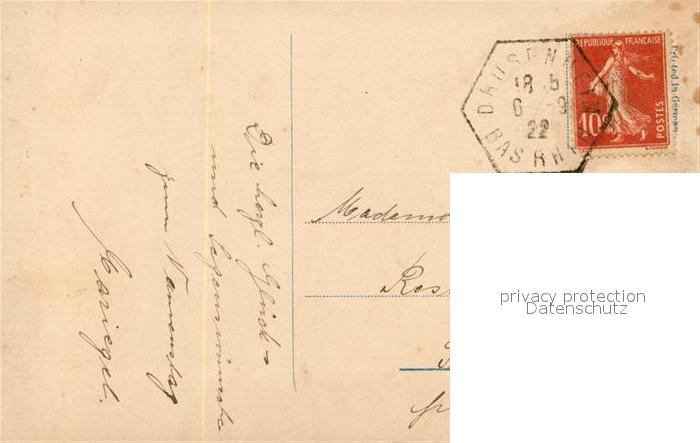 Die herzl. Glück=
und Segenswünsche
zum Namenstag
Mariegel.
DAUSEN
18
6 -9
22
BAS RHIN
REPUBLIQUE FRANÇAISE
10c
POSTES
Printed in Germany
Mademo
Res
privacy protection
Datenschutz